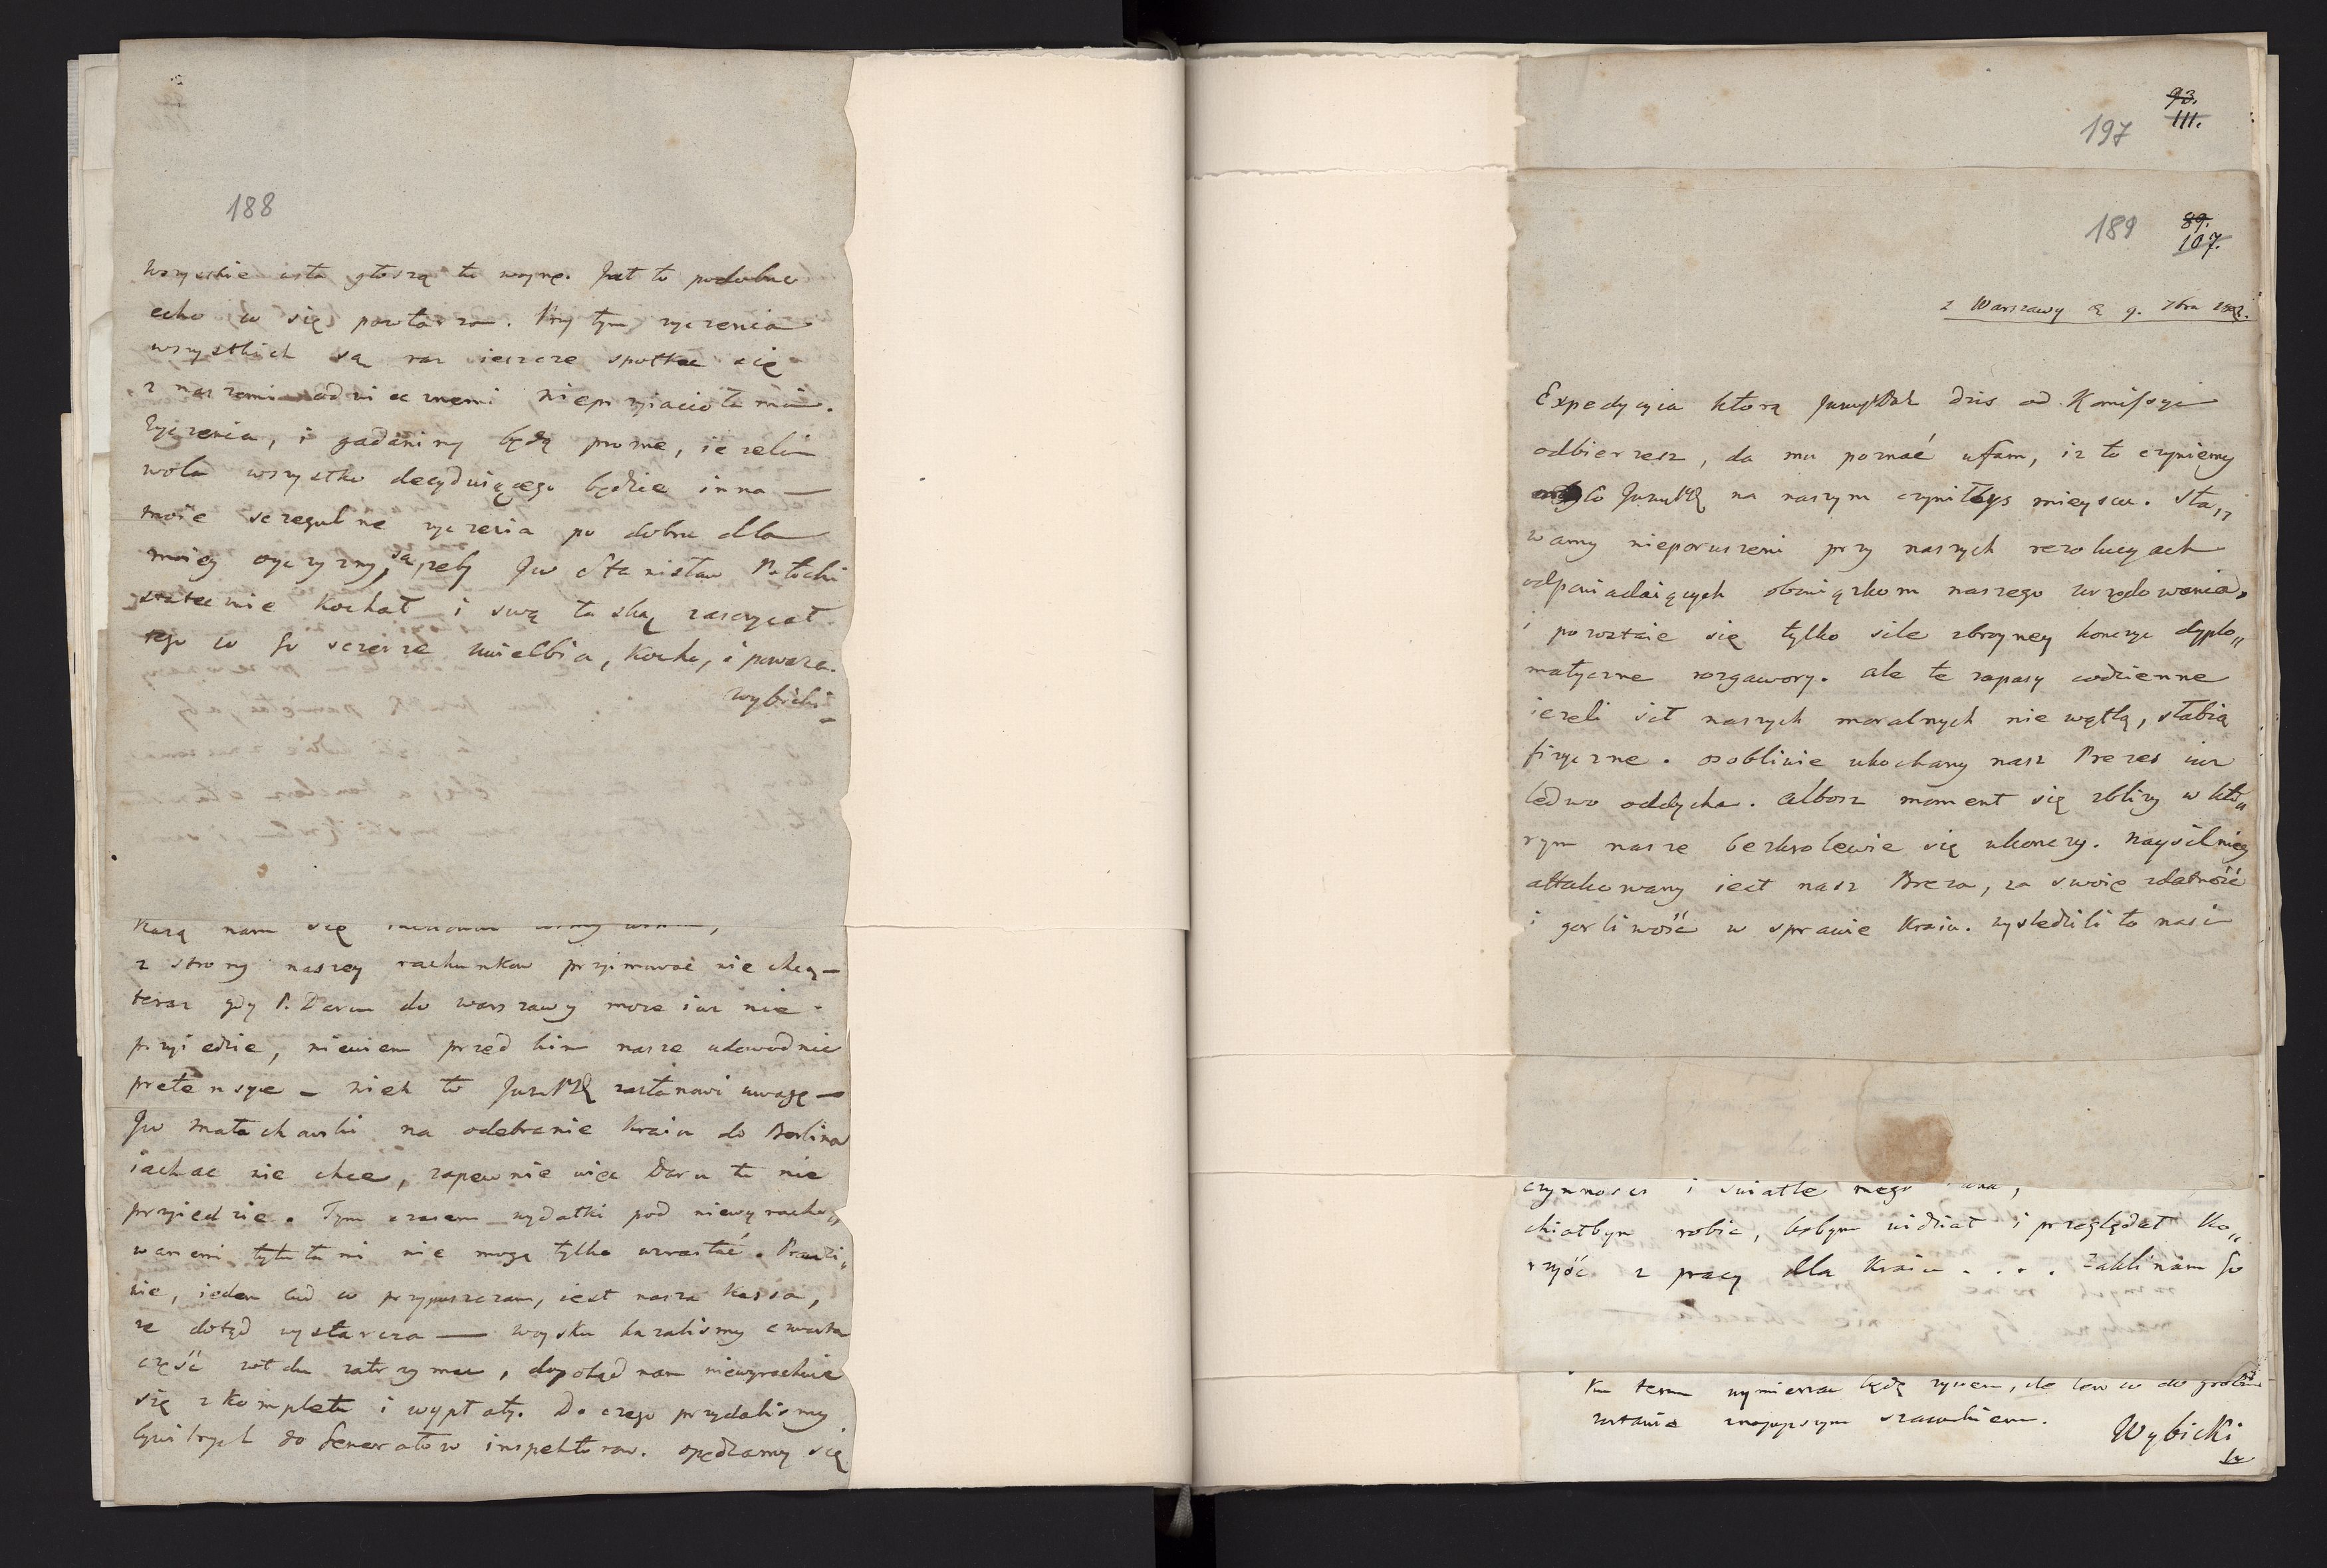 188
wszystkie usta głoszą tu woynę. Jest to podobno
echo co się powtarza. Przy tym zyczenia
wszystkich są raz ieszcze spotkac się
z naszemi odwiecznemi nieprzyiaciołami.
Zyczenia, i gadaniny będą prozne, iezeli
wola wszystko decyduiącego będzie inna —
moie szegulne zyczenia po dobru dla
moiey oyczyzny, są, zeby Jw Stanisław Potocki
statecznie kochał i swą łaską zaszczycał
tego co go szczerze uwielbia, kocha, i powaza.
Wybicki
Każą nam się
z strony naszey rachunkow przyimować nie chcą —
teraz gdy P. Daru do warszawy moze iuz nie
przyiedzie, niewiem przed kim nasze udowodnie
pretensye — niech to JWWPD zastanowi uwagę —
Jw Małachowski na odebranie kraiu do Berlina
iachac nie chce, zapewnie więc Daru tu nie
przyiedzie. Tym czasem wydatki pod niewyracho„
wanemi tytułami nie mogą tylko wzrastać. Prawdzi„
wie, ieden cud co przypuszczam, iest nasza kassa,
ze dotąd wystarcza — woysku kazalismy czwarta
część zołdu zatrzymac, dopokąd nam niewyrachuie
się z kompletu i wypłaty. Do czego przydalismy
Cywilnych do Generałow inspektorow. opędzamy się
93.
111.
197
189
89.
107.
z Warszawy d. 9. 7bra
Expedycyia ktorą dzis od Komissyi
odbierzesz, da mu poznać ufam, iz to czyniemy
co na naszym czyniłbys mieyscu. Sta„
wamy nieporuszeni przy naszych rezolucyach
odpowiadaiących obowiązkom naszego urzędowania,
i powstaie się tylko sile zbroyney konczyc dyplo„
matyczne rozgawory. ale te zapasy codzienne
iezeli sił naszych moralnych nie wątlą, słabią
fizyczne. osobliwie ukochany nasz Prezes iuz
ledwo oddycha. Alboz moment się zblizy w kto„
rym nasze bezkrolewie się ukonczy. Naysilniey
attakowany iest nasz Breza, za swoię zdatność
i gorliwość w sprawie kraiu. wysledzili to nasi
czynnosci i swiatle mego
chciałbym robic, bobym widział i przeglądał ko„
rzyść z pracy dla kraiu . . . . zaklinam go
Ku temu wymierzac będę zyciem, ile ten co do grobu
zostanie z naywyzszym szacunkiem.
Wybicki